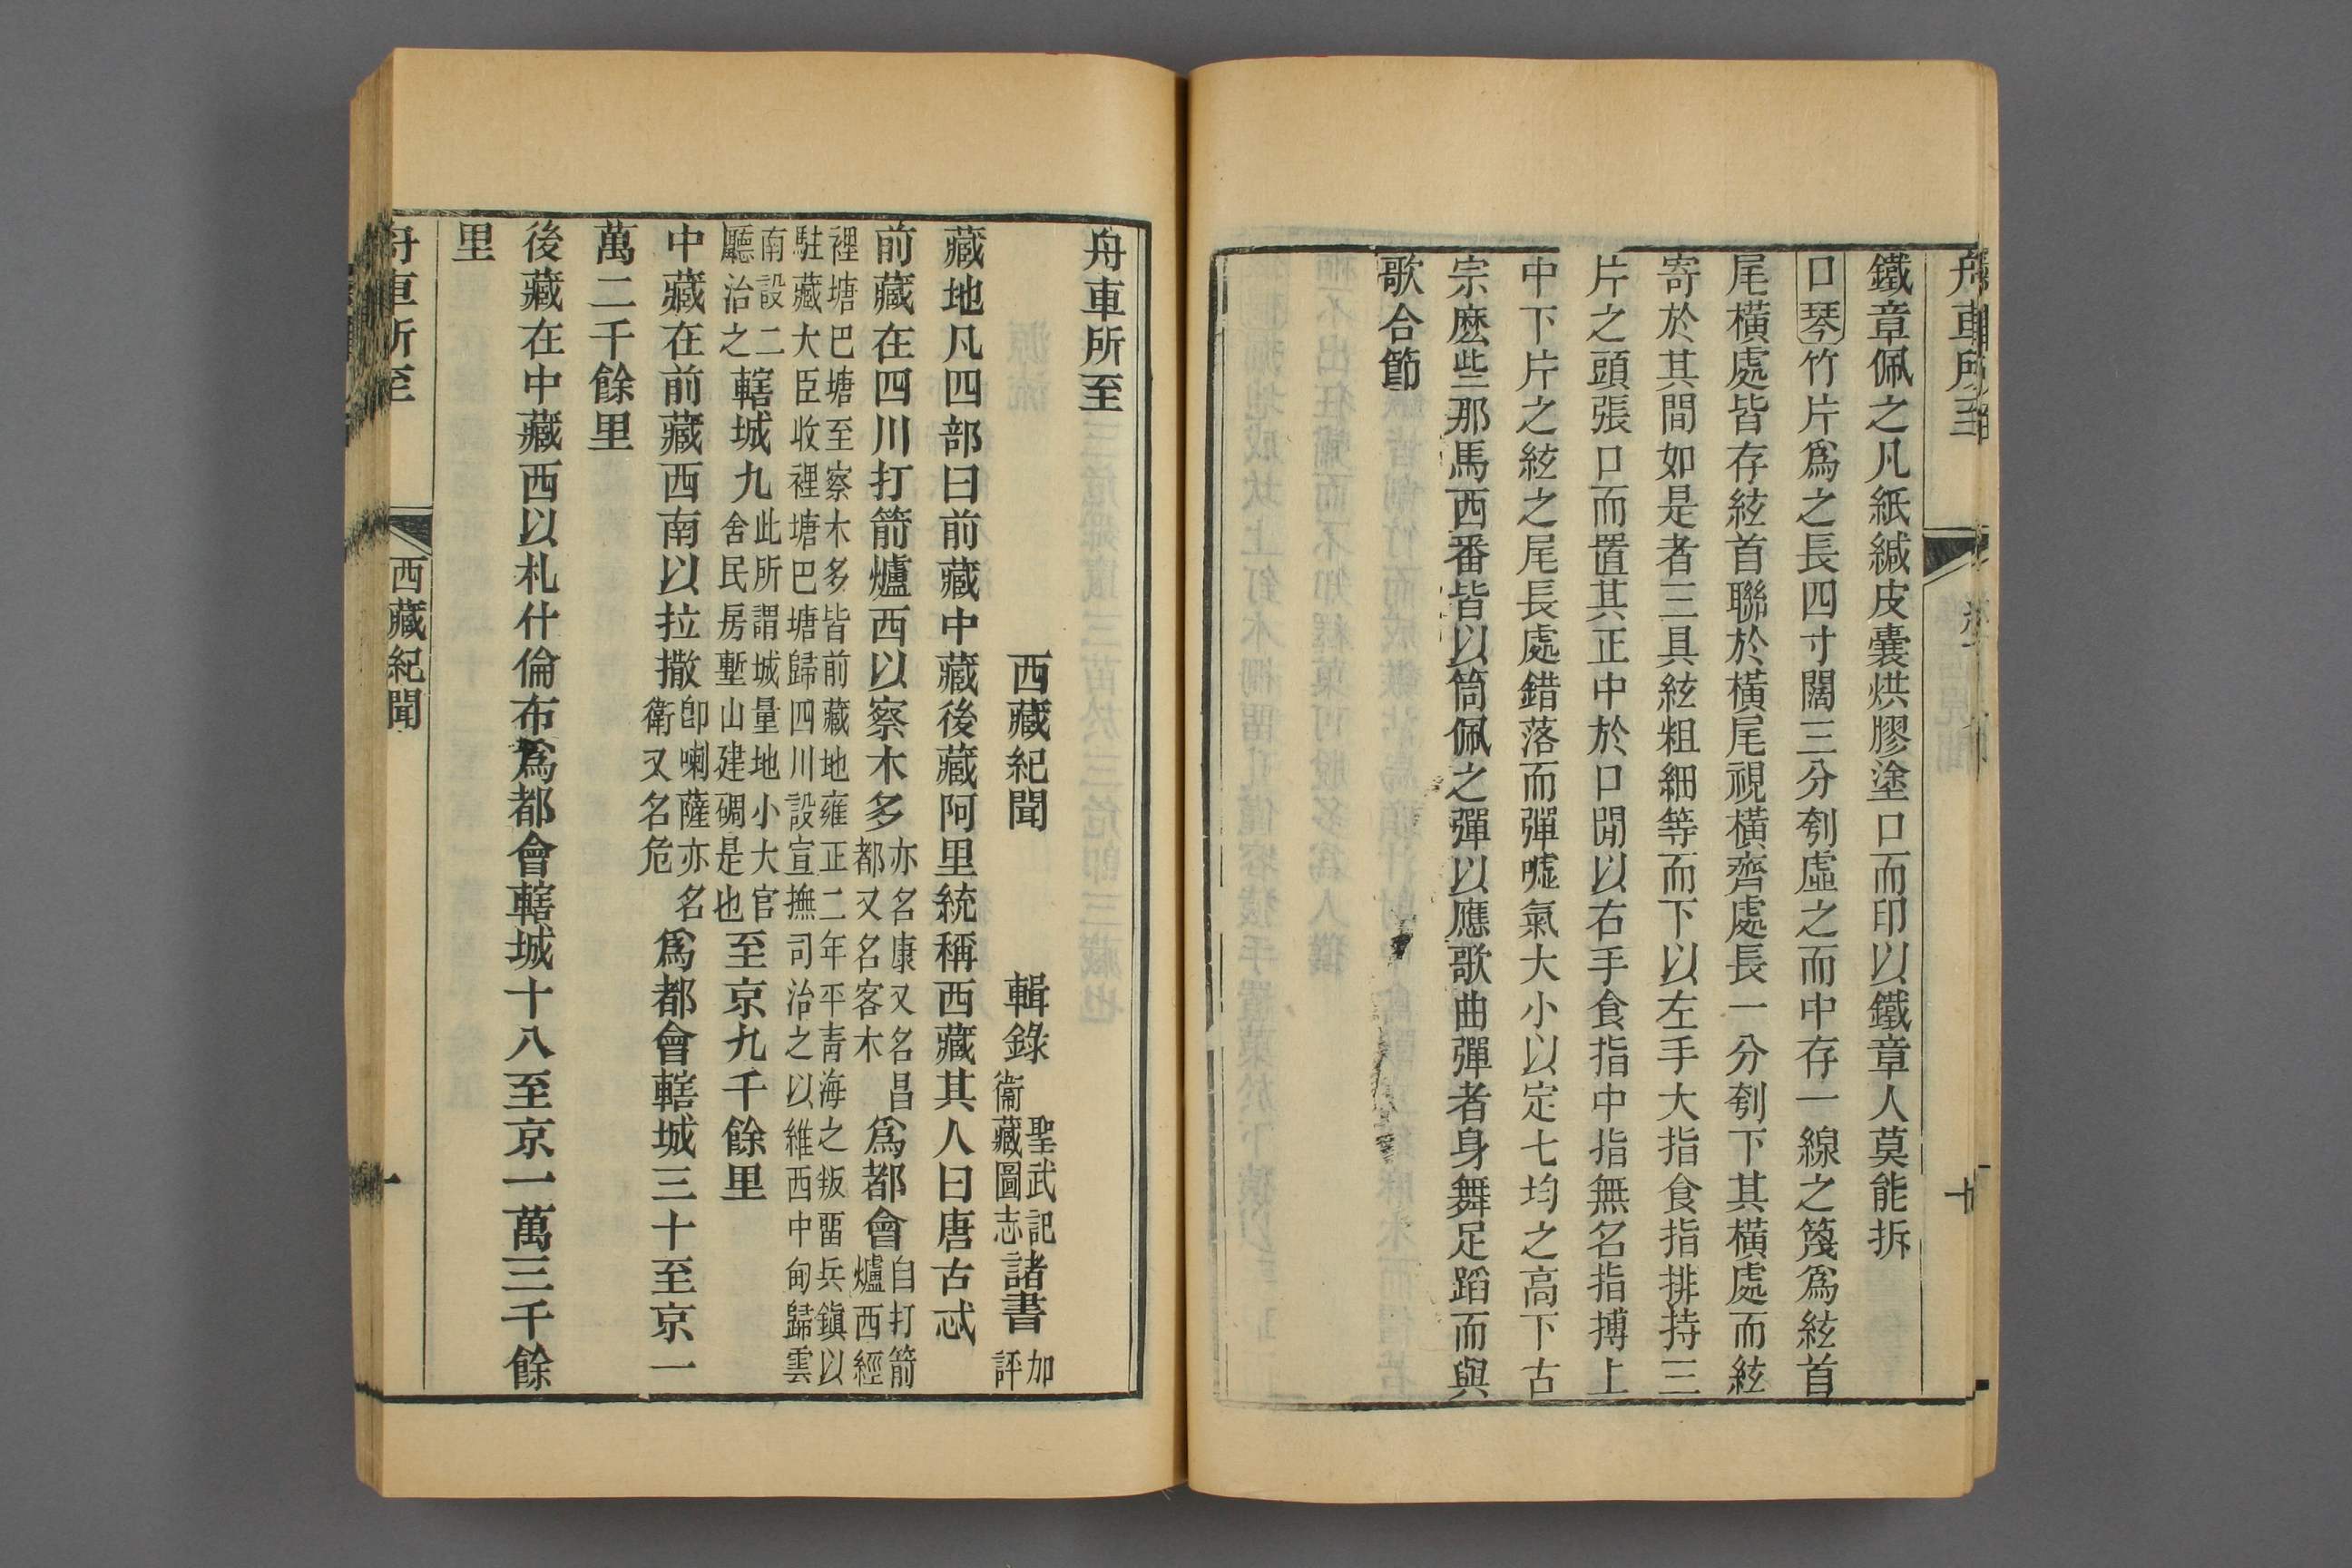 舟車所至
鐵章佩之凡紙緘皮囊烘膠塗口而印以鐵章人莫能拆
口琴竹片爲之長四寸闊三分刳虛之而中存一線之篾爲絃首
尾橫處皆存絃首聯於橫尾視橫齊處長一分刳下其橫處而絃
寄於其間如是者三具絃粗細等而下以左手大指食指排持三
片之頭張口而置其正中於口閒以右手食指中指無名指搏上
中下片之絃之尾長處錯落而彈噓氣大小以定七均之高下古
宗麽些那馬西番皆以筒佩之彈以應歌曲彈者身舞足蹈而與
歌合節
舟車所至
西藏紀聞 輯錄聖武記衞藏圖志諸書加評
藏地凡四部曰前藏中藏後藏阿里統稱西藏其人曰唐古忒
前藏在四川打箭爐西以察木多亦名康又名昌都又名客木爲都會自打箭爐西經
裡塘巴塘至察木多皆前藏地雍正二年平靑海之叛畱兵鎭以
駐藏大臣收裡塘巴塘歸四川設宣撫司治之以維西中甸歸雲
南設二廳治之轄城九此所謂城量地小大官舍民房塹山建碉是也至京九千餘里
中藏在前藏西南以拉撒卽喇薩亦名衛又名危爲都會轄城三十至京一
萬二千餘里
後藏在中藏西以札什倫布爲都會轄城十八至京一萬三千餘
里
舟車所至 西藏紀聞 一